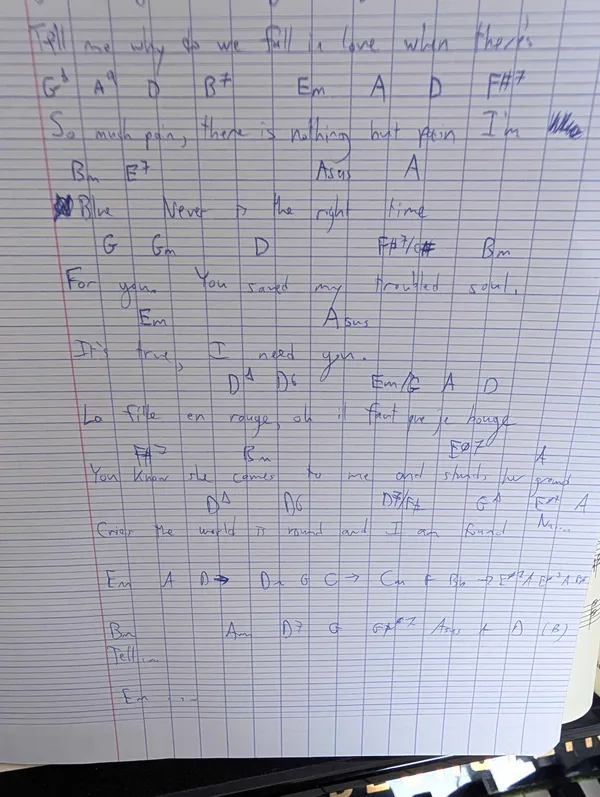 Tell me why do we fall in love when there's
A9 D B7 Em A D F#7
So much pain, there is nothing but pain I'm
Bm E7 Asus A
Blue Never is the right time
G Gm D F#7/C# Bm
For you. You saved my troubled soul.
Em Asus
It's true, I need you.
DΔ D6 Em/G A D
La fille en rouge, oh il faut que je bouge
F#7 Bm Eø7 A
You know she comes to me and stands her ground
DΔ D6 D7/F# GΔ A
Cries the world is round and I am found
Em A D → Dm G C → Cm F Bb →
Bm Am D7 G Asus A D (B)
Tell...
Em ...